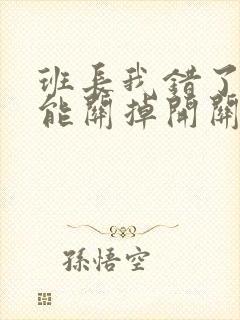 班長我錯了
能關掉開關
孫悟空